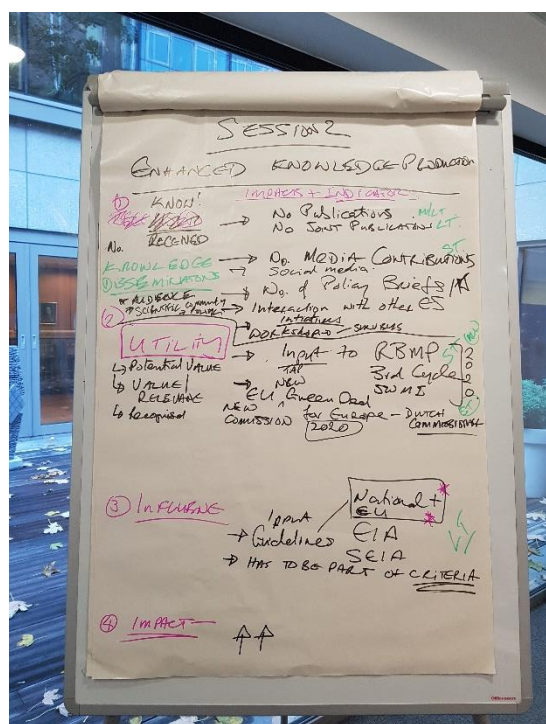 SESSION 2
ENHANCED KNOWLEDGE PRODUCTION
IMPACTS + INDICATOR
1) KNOW!
RECEIVED
No.
→ No Publications M/LT
No JOINT PUBLICATIONS LT.
KNOWLEDGE
DISSEMINATIONS
→ No. MEDIA CONTRIBUTIONS ST.
→ Social media.
→ No. of Policy Briefs
* AUDIENCE
* SCIENTIFIC Community
→ Interaction with other ES
initiatives
② UTILITY
→ WORKSHOPS - SURVEYS
↳ Potential VALUE
↳ VALUE/
RELEVANCE
↳ Recognised
→ Input to RBMP
3rd Cycle
SWMI
2020
→ NEW
EU Green Deal
for Europe - DUTCH
COMMISSIONER
NEW
COMISSION 2020
③ INFLUENCE
→ Input
Guidelines
National +
EU
EIA
SEIA
→ HAS TO BE PART OF CRITERIA
④ IMPACT
↑↑
Officemaxx